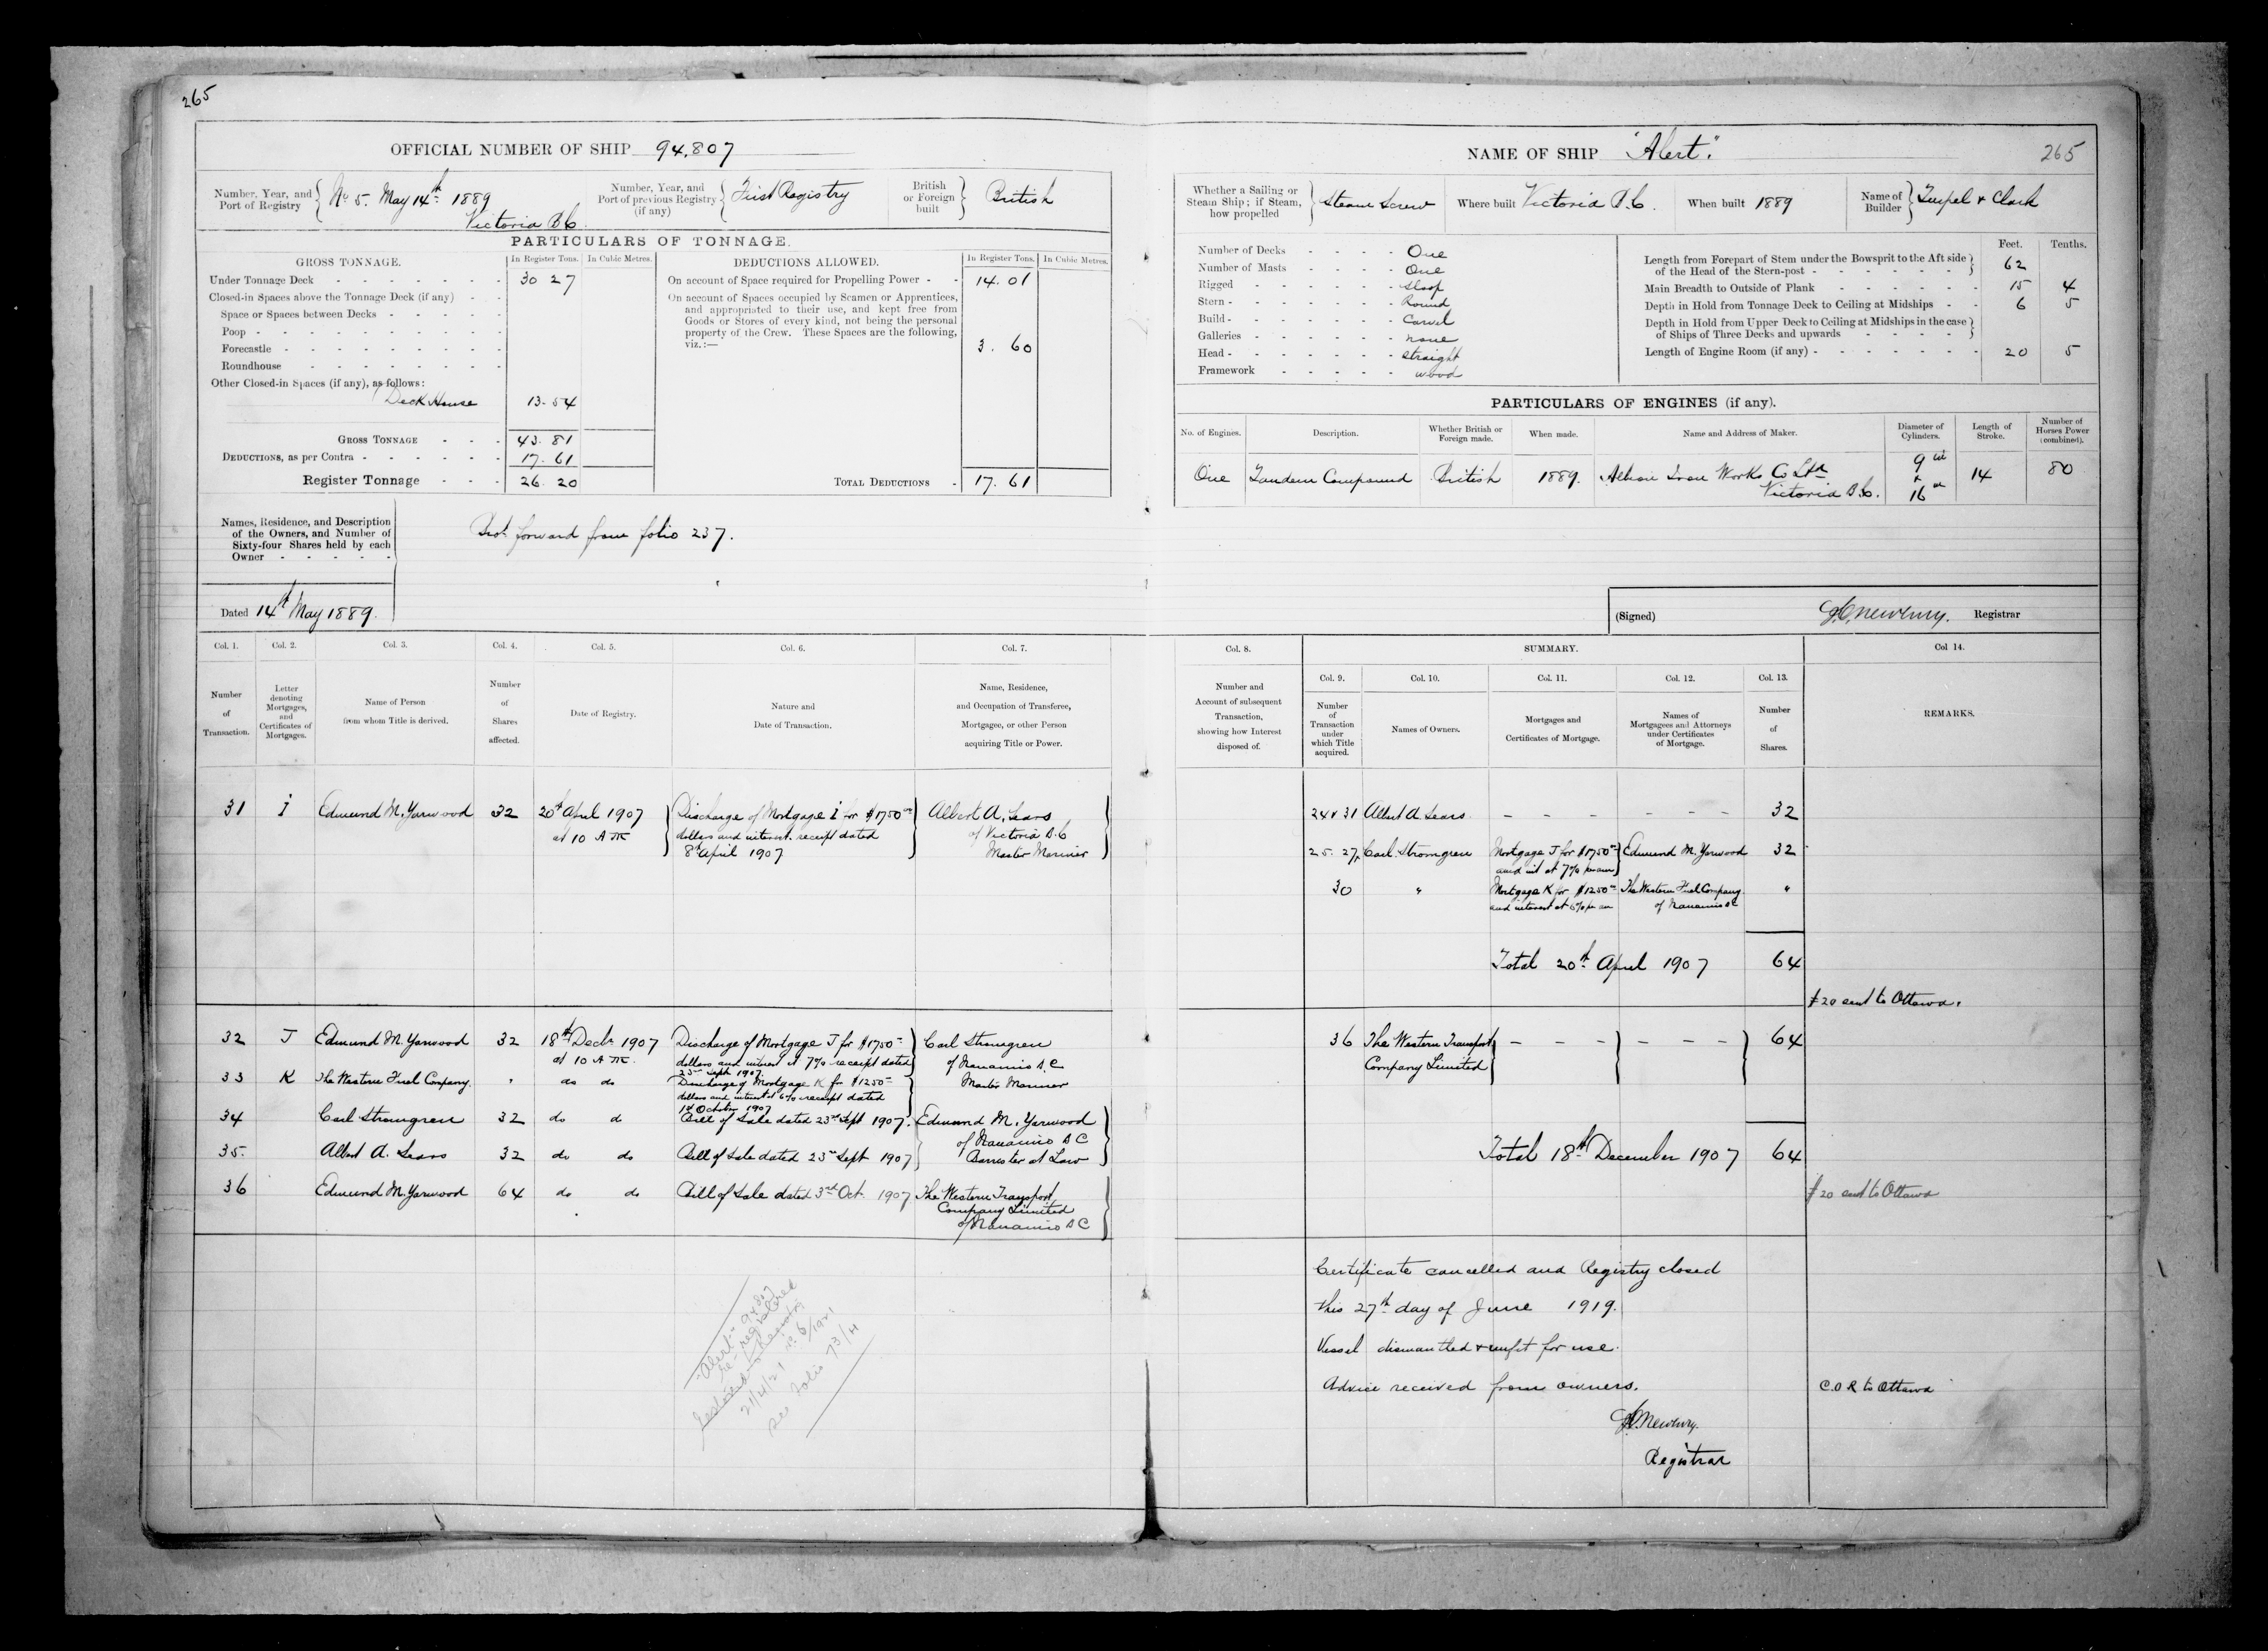 265
OFFICIAL NUMBER OF SHIP 94,807
Number, Year, and Port of Registry No 5. May 14th 1889 Victoria B.C.
Number, Year, and Port of previous Registry (if any) First Registry
British or Foreign built British
PARTICULARS OF TONNAGE.
GROSS TONNAGE. In Register Tons. In Cubic Metres.
Under Tonnage Deck 30 27
Closed-in Spaces above the Tonnage Deck (if any)
Space or Spaces between Decks
Poop
Forecastle
Roundhouse
Other Closed-in Spaces (if any), as follows:
Deck House 13.54
GROSS TONNAGE 43.81
DEDUCTIONS, as per Contra 17.61
Register Tonnage 26.20
DEDUCTIONS ALLOWED. In Register Tons. In Cubic Metres.
On account of Space required for Propelling Power 14.01
On account of Spaces occupied by Seamen or Apprentices,
and appropriated to their use, and kept free from
Goods or Stores of every kind, not being the personal
property of the Crew. These Spaces are the following,
viz.:— 3.60
TOTAL DEDUCTIONS 17.61
Names, Residence, and Description
of the Owners, and Number of
Sixty-four Shares held by each
Owner
Brot forward from folio 237.
Dated 14th May 1889.
Col. 1. Col. 2. Col. 3. Col. 4. Col. 5. Col. 6. Col. 7.
Number of Transaction.
Letter denoting Mortgages, and Certificates of Mortgages.
Name of Person from whom Title is derived.
Number of Shares affected.
Date of Registry.
Nature and Date of Transaction.
Name, Residence, and Occupation of Transferee, Mortgagee, or other Person acquiring Title or Power.
31 I Edmund M. Yarwood 32 20th April 1907 Discharge of Mortgage I for $1750 Albert A. Sears
at 10 AM dollars and interest. receipt dated of Victoria B.C
8th April 1907 Master Mariner
32 J Edmund M. Yarwood 32 18th Decbr 1907 Discharge of Mortgage J for $1750 Carl Stromgren
at 10 AM. dollars and interest at 7% receipt dated of Nanaimo B.C.
23rd Sept 1907
33 K The Western Fuel Company. " do do Discharge of Mortgage K for $1250 Master Mariner
dollars and interest at 6% receipt dated
1st October 1907
34 Carl Stromgren 32 do d Bill of Sale dated 23rd Sept 1907. Edmund M. Yarwood
of Nanaimo B C
35. Albert A. Sears 32 do do Bill of Sale dated 23rd Sept 1907 Barrister at Law
36 Edmund M. Yarwood 64 do do Bill of Sale dated 3rd Oct. 1907 The Western Transport
Company Limited
of Nanaimo B C
"Alert" 94807
re-registered
Restored to Registry
21/4/21 No. 6/1921
see folio 73/4
NAME OF SHIP "Alert". 265
Whether a Sailing or Steam Ship; if Steam, how propelled Steam Screw
Where built Victoria B.C.
When built 1889
Name of Builder Turpel & Clark
Number of Decks One
Number of Masts One
Rigged Sloop
Stern Round
Build Carvel
Galleries none
Head straight
Framework wood
Feet. Tenths.
Length from Forepart of Stem under the Bowsprit to the Aft side
of the Head of the Stern-post 62
Main Breadth to Outside of Plank 15 4
Depth in Hold from Tonnage Deck to Ceiling at Midships 6 5
Depth in Hold from Upper Deck to Ceiling at Midships in the case
of Ships of Three Decks and upwards
Length of Engine Room (if any) 20 5
PARTICULARS OF ENGINES (if any).
No. of Engines. Description. Whether British or Foreign made. When made. Name and Address of Maker. Diameter of Cylinders. Length of Stroke. Number of Horses Power (combined).
One Tandem Compound British 1889. Albion Iron Works Co Ltd Victoria B.C. 9 in & 16 in 14 80
(Signed) Newbury. Registrar
Col. 8. SUMMARY. Col 14.
Col. 9. Col. 10. Col. 11. Col. 12. Col. 13.
Number and Account of subsequent Transaction, showing how Interest disposed of.
Number of Transaction under which Title acquired.
Names of Owners.
Mortgages and Certificates of Mortgage.
Names of Mortgagees and Attorneys under Certificates of Mortgage.
Number of Shares.
REMARKS.
24 & 31 Albert A. Sears. – – – – – – 32
25. 27, Carl Stromgren Mortgage J for $1750 Edmund M. Yarwood 32
and int at 7% per ann
30 " Mortgage K for $1250 The Western Fuel Company "
and interest at 6% per ann of Nanaimo BC
Total 20th April 1907 64
$20 sent to Ottawa.
36 The Western Transport – – – – – – 64
Company Limited
Total 18th December 1907 64
$20 sent to Ottawa
Certificate cancelled and Registry closed
this 27th day of June 1919.
Vessel dismantled & unfit for use.
Advice received from owners. C.O.R to Ottawa
Newbury.
Registrar